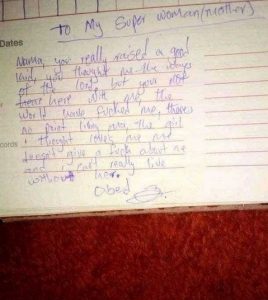 To My Super woman (mother)
Dates
Mama, you really raised a good
kid, you thought me the ways
of the lord, but your not
here with me, the
world have fucked me, theres
no point living the girl
i thought loves me me
doesn't give a fuck about me
and i can't really live
without her.
Obed
cords